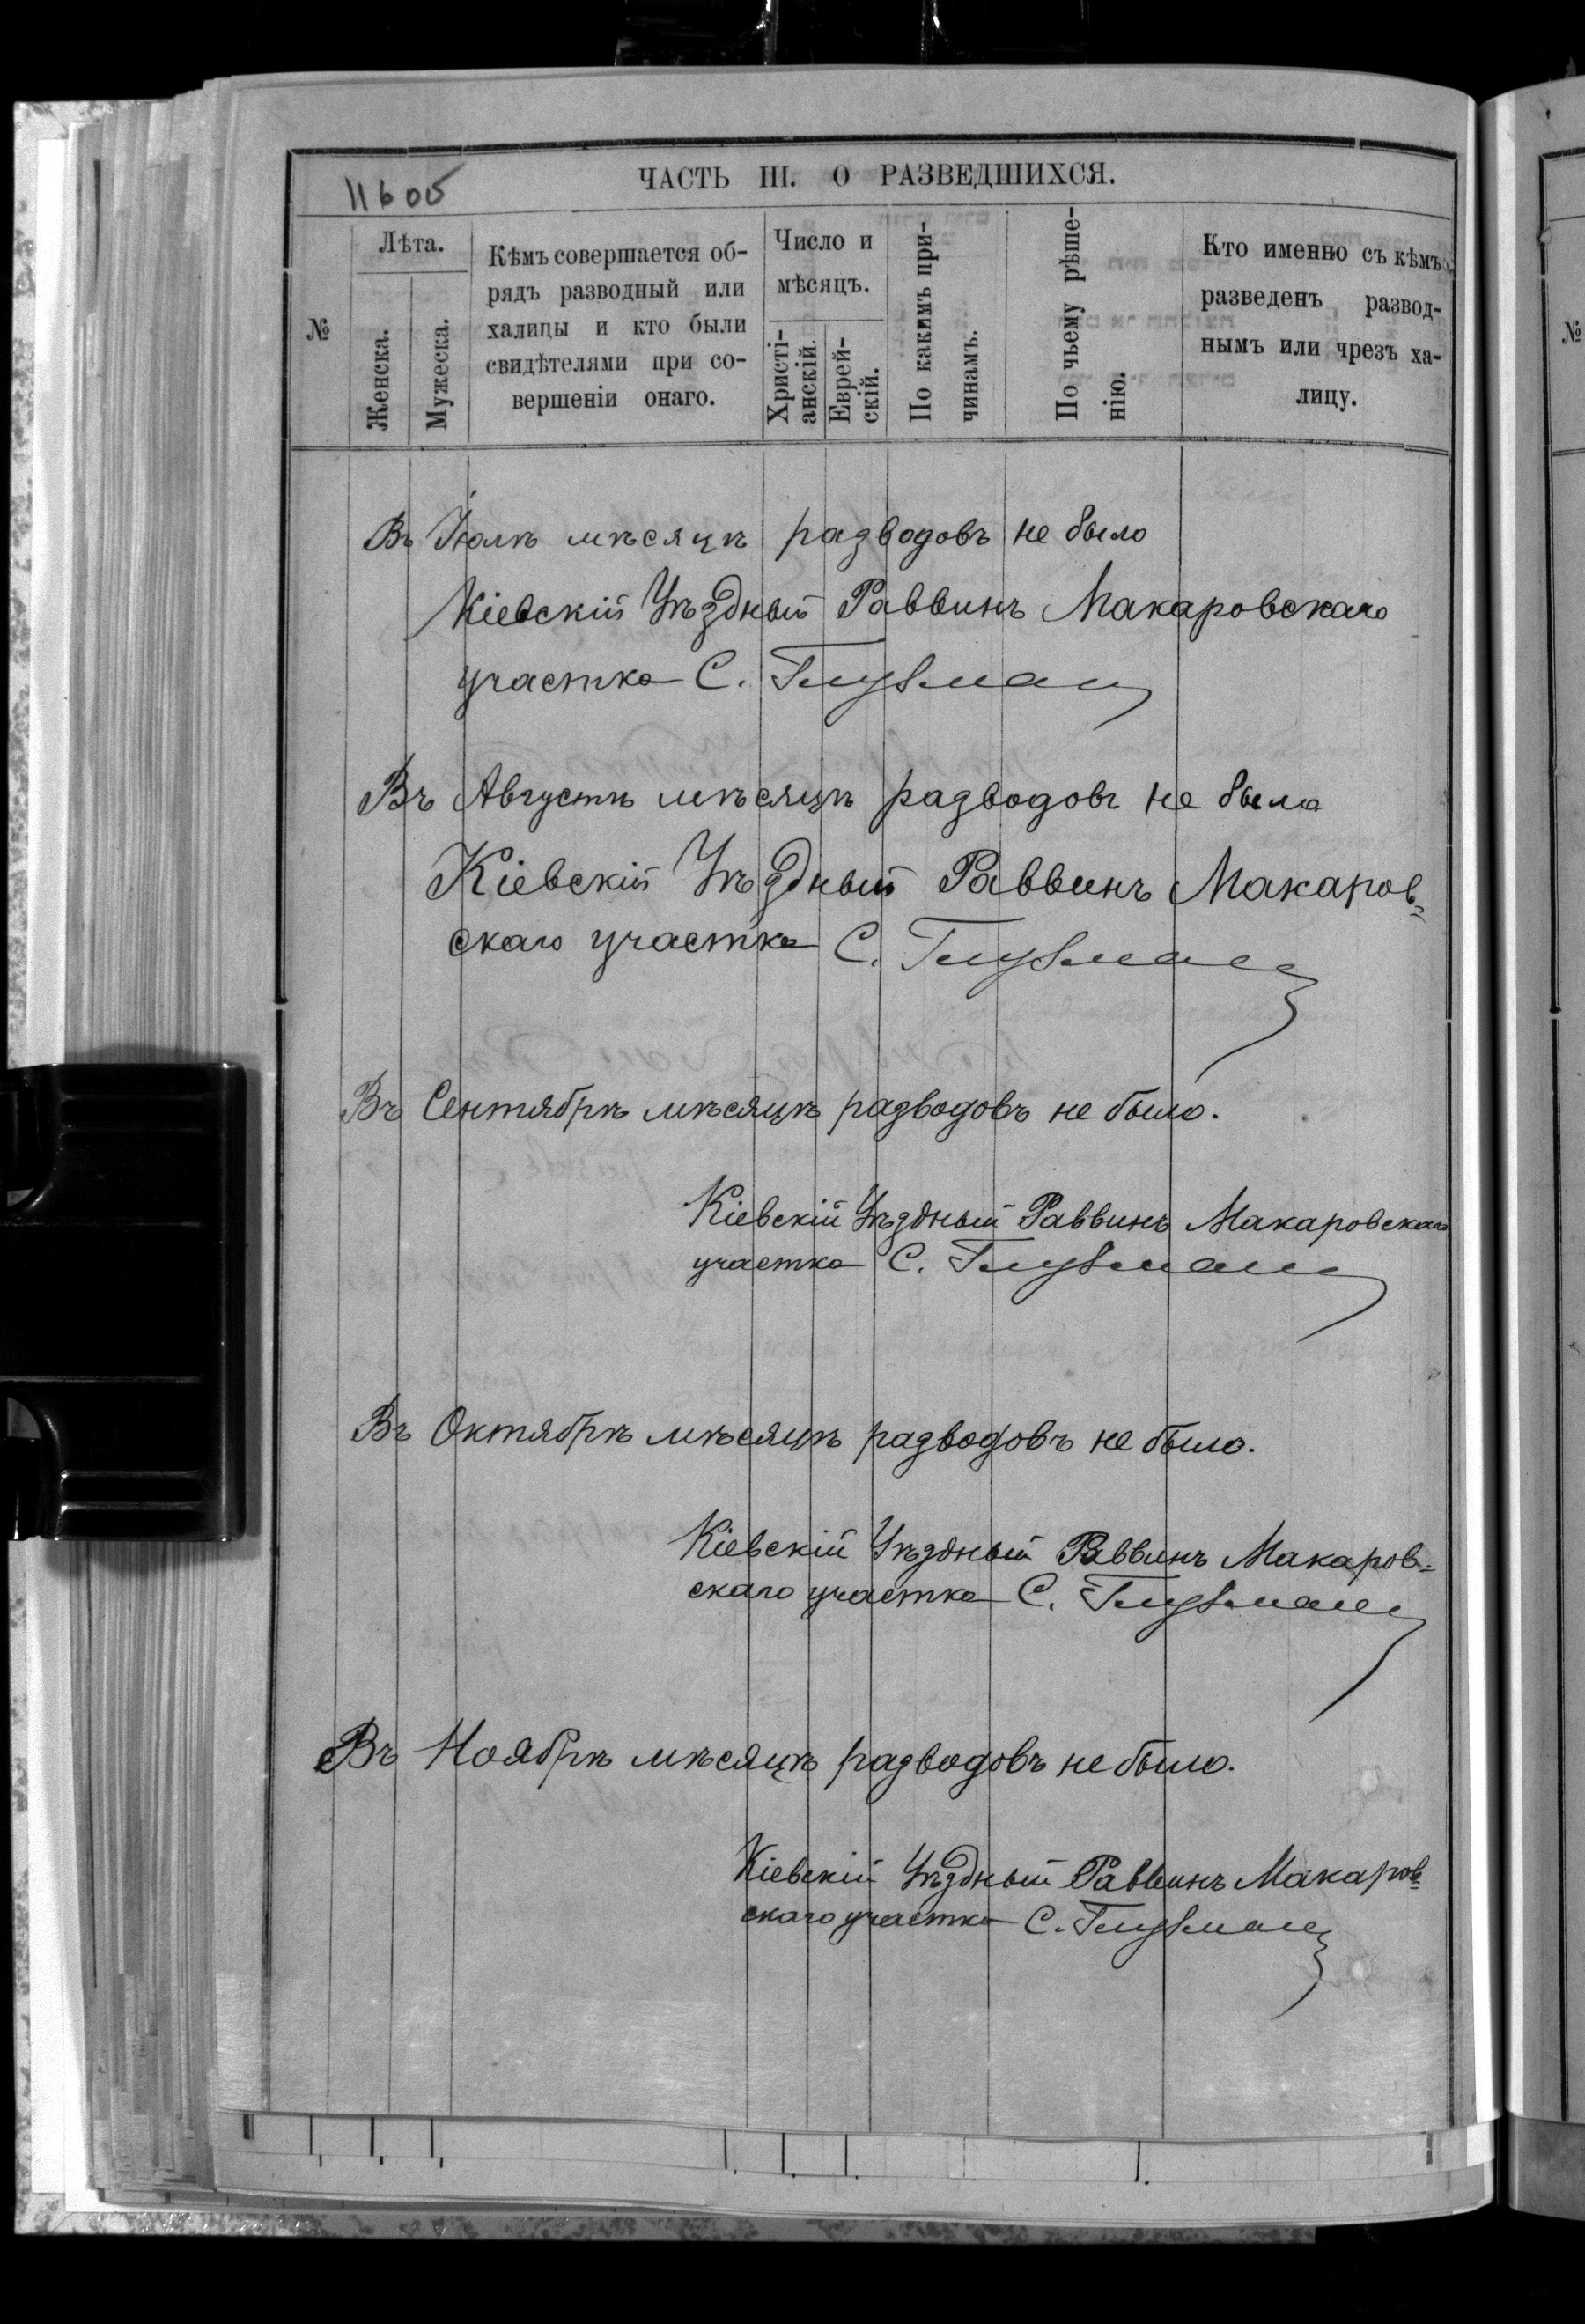 11605
ЧАСТЬ III. О РАЗВЕДШИХСЯ.
№
Лѣта.
Женска.
Мужеска.
Кѣмъ совершается об-
рядъ разводный или
халицы и кто были
свидѣтелями при со-
вершеніи онаго.
Число и
мѣсяцъ.
Христі-
анскій.
Еврей-
скій.
По какимъ при-
чинамъ.
По чьему рѣше-
нію.
Кто именно съ кѣмъ
разведенъ развод-
нымъ или чрезъ ха-
лицу.
№
Въ Іюлѣ мѣсяцѣ разводовъ не было
Кіевскій Уѣздный Раввинъ Макаровскаго
участка С. Глузман
Въ Августѣ мѣсяцѣ разводовъ не было
Кіевскій Уѣздный Раввинъ Макаров=
скаго участка С. Глузман
Въ Сентябрѣ мѣсяцѣ разводовъ не было.
Кіевскій Уѣздный Раввинъ Макаровскаго
участка С. Глузман
Въ Октябрѣ мѣсяцѣ разводовъ не было.
Кіевскій Уѣздный Раввинъ Макаров=
скаго участка С. Глузман
Въ Ноябрѣ мѣсяцѣ разводовъ не было.
Кіевскій Уѣздный Раввинъ Макаров=
скаго участка С. Глузман